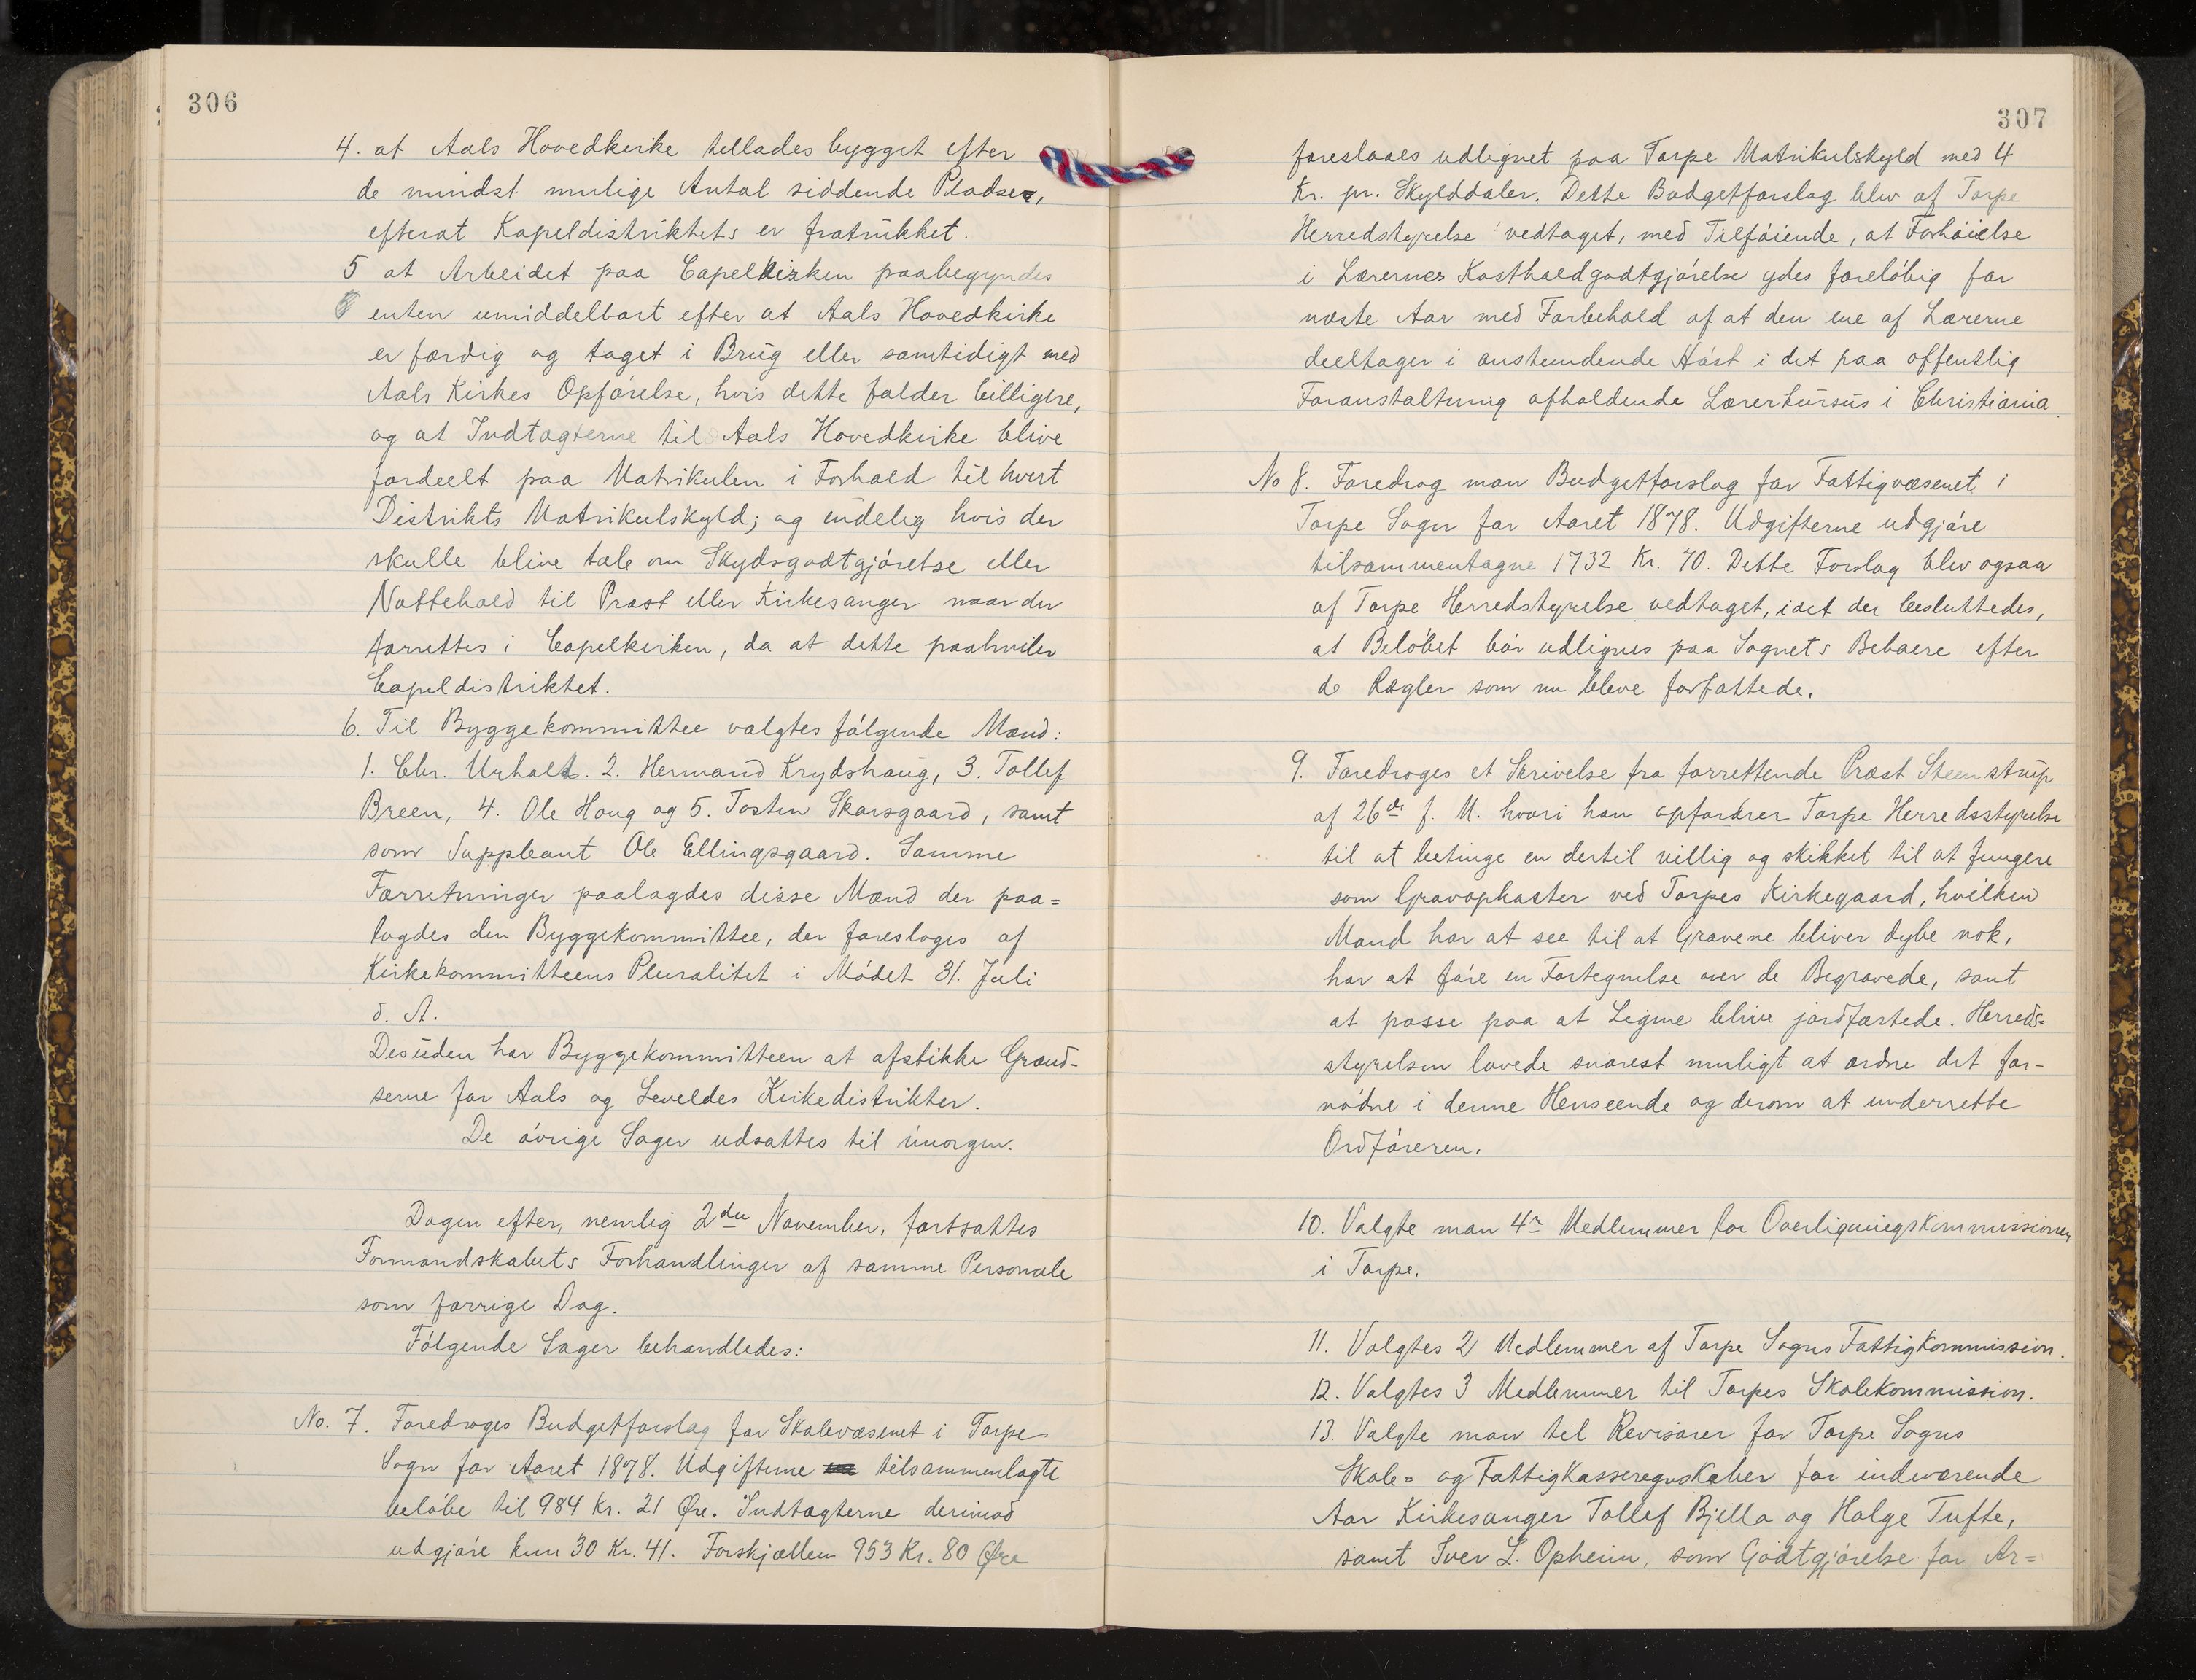 306
4. at Aals Hovedkirke tillades bygget efter
de mindst mulige Antal siddende Pladser,
efterat Kapeldistriktets er fratrukket.
5 at Arbeidet paa Capelkirken paabegyndes
enten umiddelbart efter at Aals Hovedkirke
er færdig og taget i Brug eller samtidigt med
Aals Kirkes Opførelse, hvis dette falder billigere,
og at Indtagterne til Aals Hovedkirke blive
fordeelt paa Matrikulen i Forhold til hvert
Distrikts Matrikulskyld; og endelig hvis der
skulle blive tale om Skydsgodtgjørelse eller
Nattehold til Præst eller Kirkesanger naar der
forrettes i Capelkirken, da at dette paahviler
Capeldistriktet.
6. Til Byggekommittee valgtes følgende Mænd:
1. Chr. Urhald. 2. Hermand Krydshaug, 3. Tollef
Breen, 4. Ole Houg og 5. Tosten Skarsgaard, samt
som Suppleant Ole Ellingsgaard. Samme
Forretninger paalagdes disse Mænd der paa=
lagdes den Byggekommittee, der foresloges af
Kirkekommitteens Pluralitet i Mødet 31. Juli
d. A.
Desuden har Byggekommitteen at afstikke Grænd-
serne for Aals og Leveldes Kirkedistrikter.
De øvrige Sager udsattes til imorgen.
Dagen efter, nemlig 2den November, fortsattes
Formandskabets Forhandlinger af samme Personale
som forrige Dag.
Følgende Sager behandledes:
No. 7. Foredroges Budgetforslag for Skolevæsenet i Torpe
Sogn for Aaret 1878. Udgifterne tilsammenlagte
beløbe til 984 Kr. 21 Øre. Indtagterne derimod
udgjøre kun 30 Kr. 41. Forskjællen 953 Kr. 80 Øre
307
foreslaaes udlignet paa Torpe Matrikulskyld med 4
Kr. pr. Skylddaler. Dette Budgetforslag blev af Torpe
Herredstyrelse vedtaget, med Tilføiende, at Forhøielse
i Lærernes Kostholdgodtgjørelse ydes foreløbig for
næste Aar med Forbehold af at den ene af Lærerne
deeltager i anstundende Høst i det paa offentlig
Foranstaltning afholdende Lærerkursus i Christiania.
No 8. Foredrog man Budgetforslag for Fattigvæsenet i
Torpe Sogn for Aaret 1878. Udgifterne udgjøre
tilsammentagne 1732 Kr. 70. Dette Forslag blev ogsaa
af Torpe Herredstyrelse vedtaget, idet der besluttedes,
at Beløbet bør udlignes paa Sognets Beboere efter
de Regler som nu bleve forfattede.
9. Foredroges et Skrivelse fra forrettende Præst Steenstrup
af 26de f. M. hvori han opfordrer Torpe Herredsstyrelse
til at betinge en dertil villig og skikket til at fungere
som Gravopkaster ved Torpes Kirkegaard, hvilken
Mand har at see til at Gravene bliver dybe nok,
har at føre en Fortegnelse over de Begravede, samt
at passe paa at Ligene blive jordfæstede. Herreds=
styrelsen lovede snarest muligt at ordne det for-
nødne i denne Henseende og derom at underrette
Ordføreren.
10. Valgte man 4re Medlemmer for Overligningskommissionen
i Torpe.
11. Valgtes 2 Medlemmer af Torpe Sogns Fattigkommission.
12. Valgtes 3 Medlemmer til Torpes Skolekommission.
13. Valgte man til Revisorer for Torpe Sogns
Skole= og Fattigkasseregnskaber for indeværende
Aar Kirkesanger Tollef Bjella og Holge Tufte,
samt Iver L. Opheim, som Godtgjørelse for Ar=